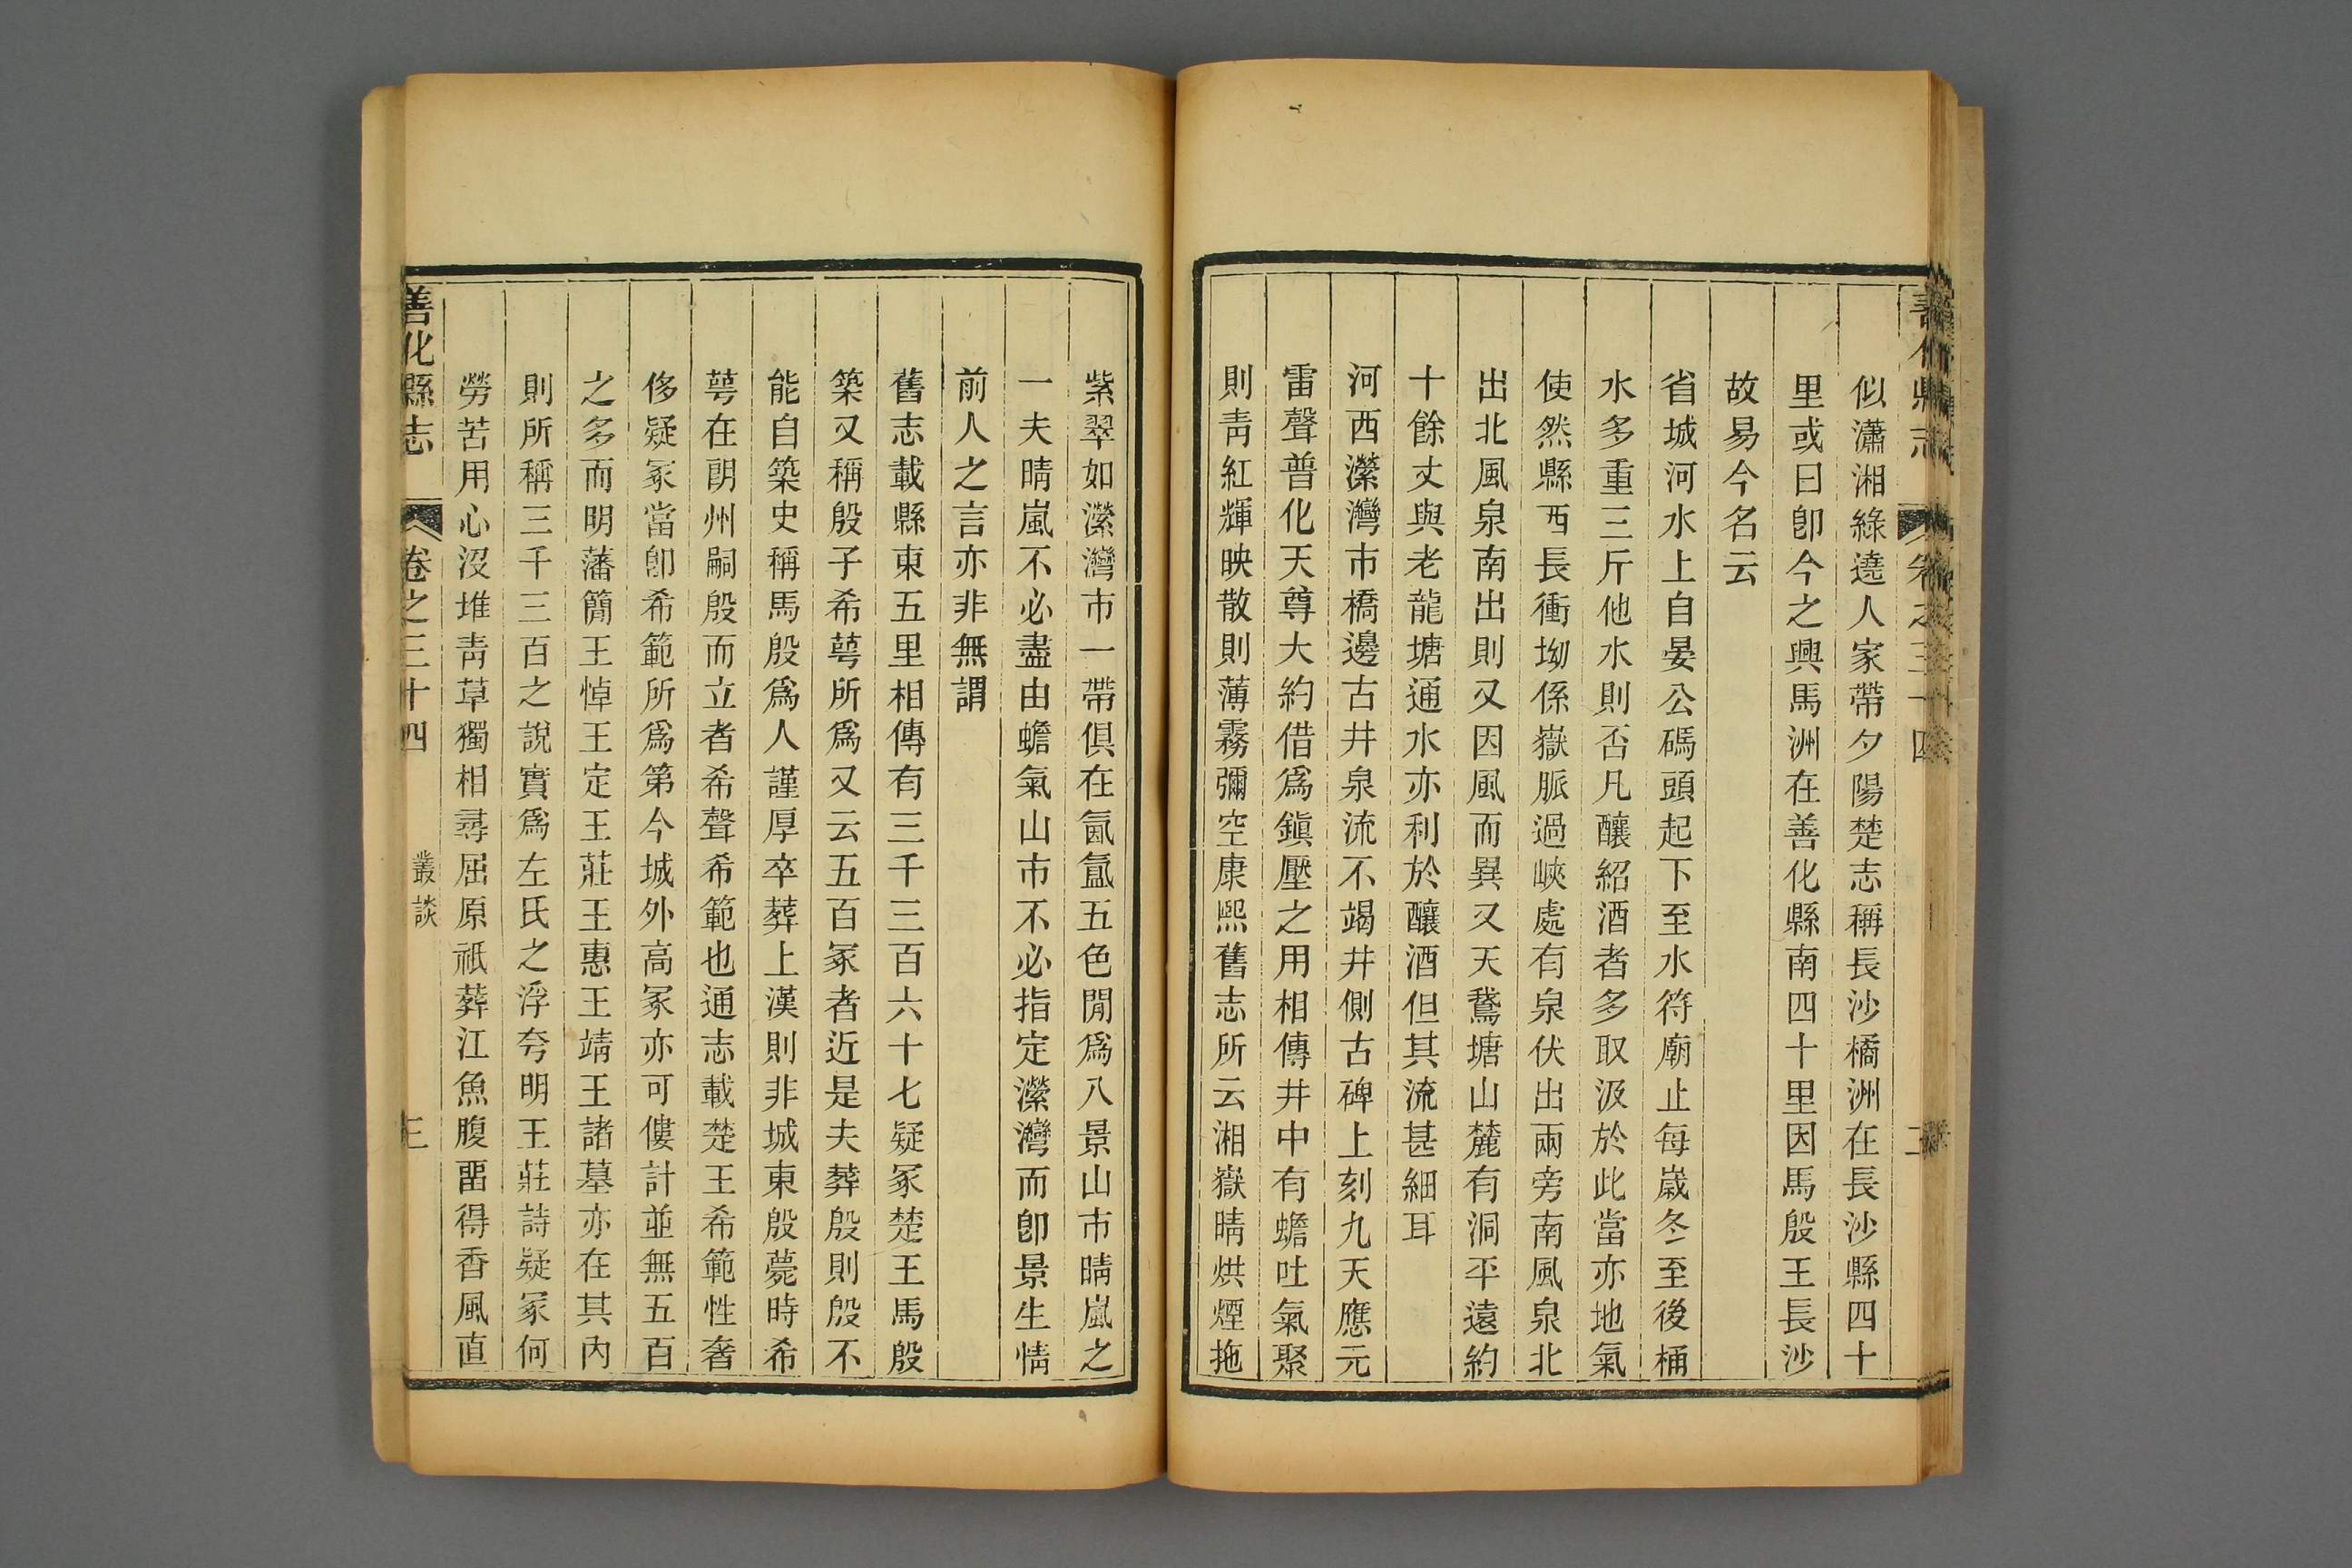 善化縣志 卷之三十四 二
似瀟湘綠遶人家帶夕陽楚志稱長沙橘洲在長沙縣四十
里或曰卽今之興馬洲在善化縣南四十里因馬殷王長沙
故易今名云
省城河水上自晏公碼頭起下至水符廟止每歲冬至後桶
水多重三斤他水則否凡釀紹酒者多取汲於此當亦地氣
使然縣西長衝坳係嶽脈過峽處有泉伏出兩旁南風泉北
出北風泉南出則又因風而異又天鵞塘山麓有洞平遠約
十餘丈與老龍塘通水亦利於釀酒但其流甚細耳
河西濚灣市橋邊古井泉流不竭井側古碑上刻九天應元
雷聲普化天尊大約借爲鎭壓之用相傳井中有蟾吐氣聚
則靑紅輝映散則薄霧彌空康熙舊志所云湘嶽晴烘煙拖
紫翠如濚灣市一帶俱在氤氳五色閒爲八景山市晴嵐之
一夫晴嵐不必盡由蟾氣山市不必指定濚灣而卽景生情
前人之言亦非無謂
舊志載縣東五里相傳有三千三百六十七疑冢楚王馬殷
築又稱殷子希萼所爲又云五百冢者近是夫葬殷則殷不
能自築史稱馬殷爲人謹厚卒葬上潢則非城東殷薨時希
萼在朗州嗣殷而立者希聲希範也通志載楚王希範性奢
侈疑冢當卽希範所爲第今城外高冢亦可僂計並無五百
之多而明藩簡王悼王定王莊王惠王靖王諸墓亦在其內
則所稱三千三百之說實爲左氏之浮夸明王莊詩疑冢何
勞苦用心沒堆靑草獨相尋屈原祇葬江魚腹畱得香風直
善化縣志 卷之三十四 叢談 三